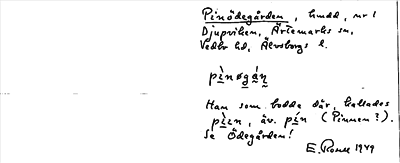 Pinödegården, hmdd, nr 1
Djupviken, Ärtemarks sn,
Vedbo hd, Älvsborgs l.
pìnøgáṇ
Han som bodde där, kallades
pìɪn, äv. pín (Pinnen?).
Se Ödegården!
E. Rosell 1949